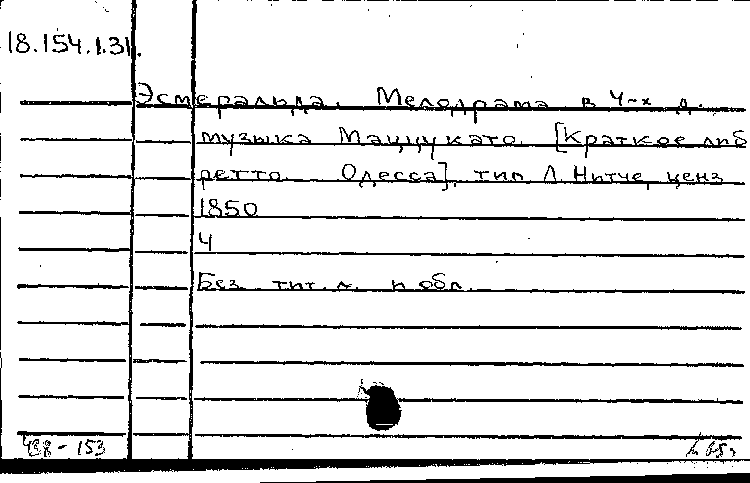 18.154.1.31.
Эсмеральда. Мелодрама в 4-х д.
музыка Маццукато. [Краткое либ
ретто. Одесса], тип Л. Нитче, ценз
1850
4
Без тит. л. и обл.
438 - 153